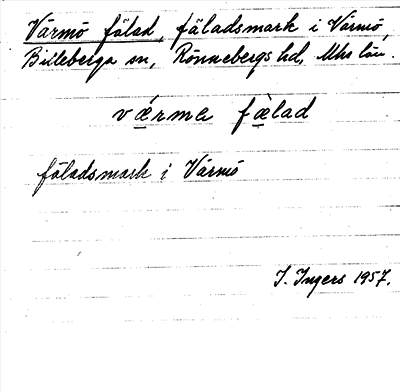 Värmö fälad, fäladsmark i Värmö,
Billeberga sn, Rönnebergs hd, Mhs län.
vǽrmə fæ̀lad
fäladsmark i Värmö
I. Ingers 1957.